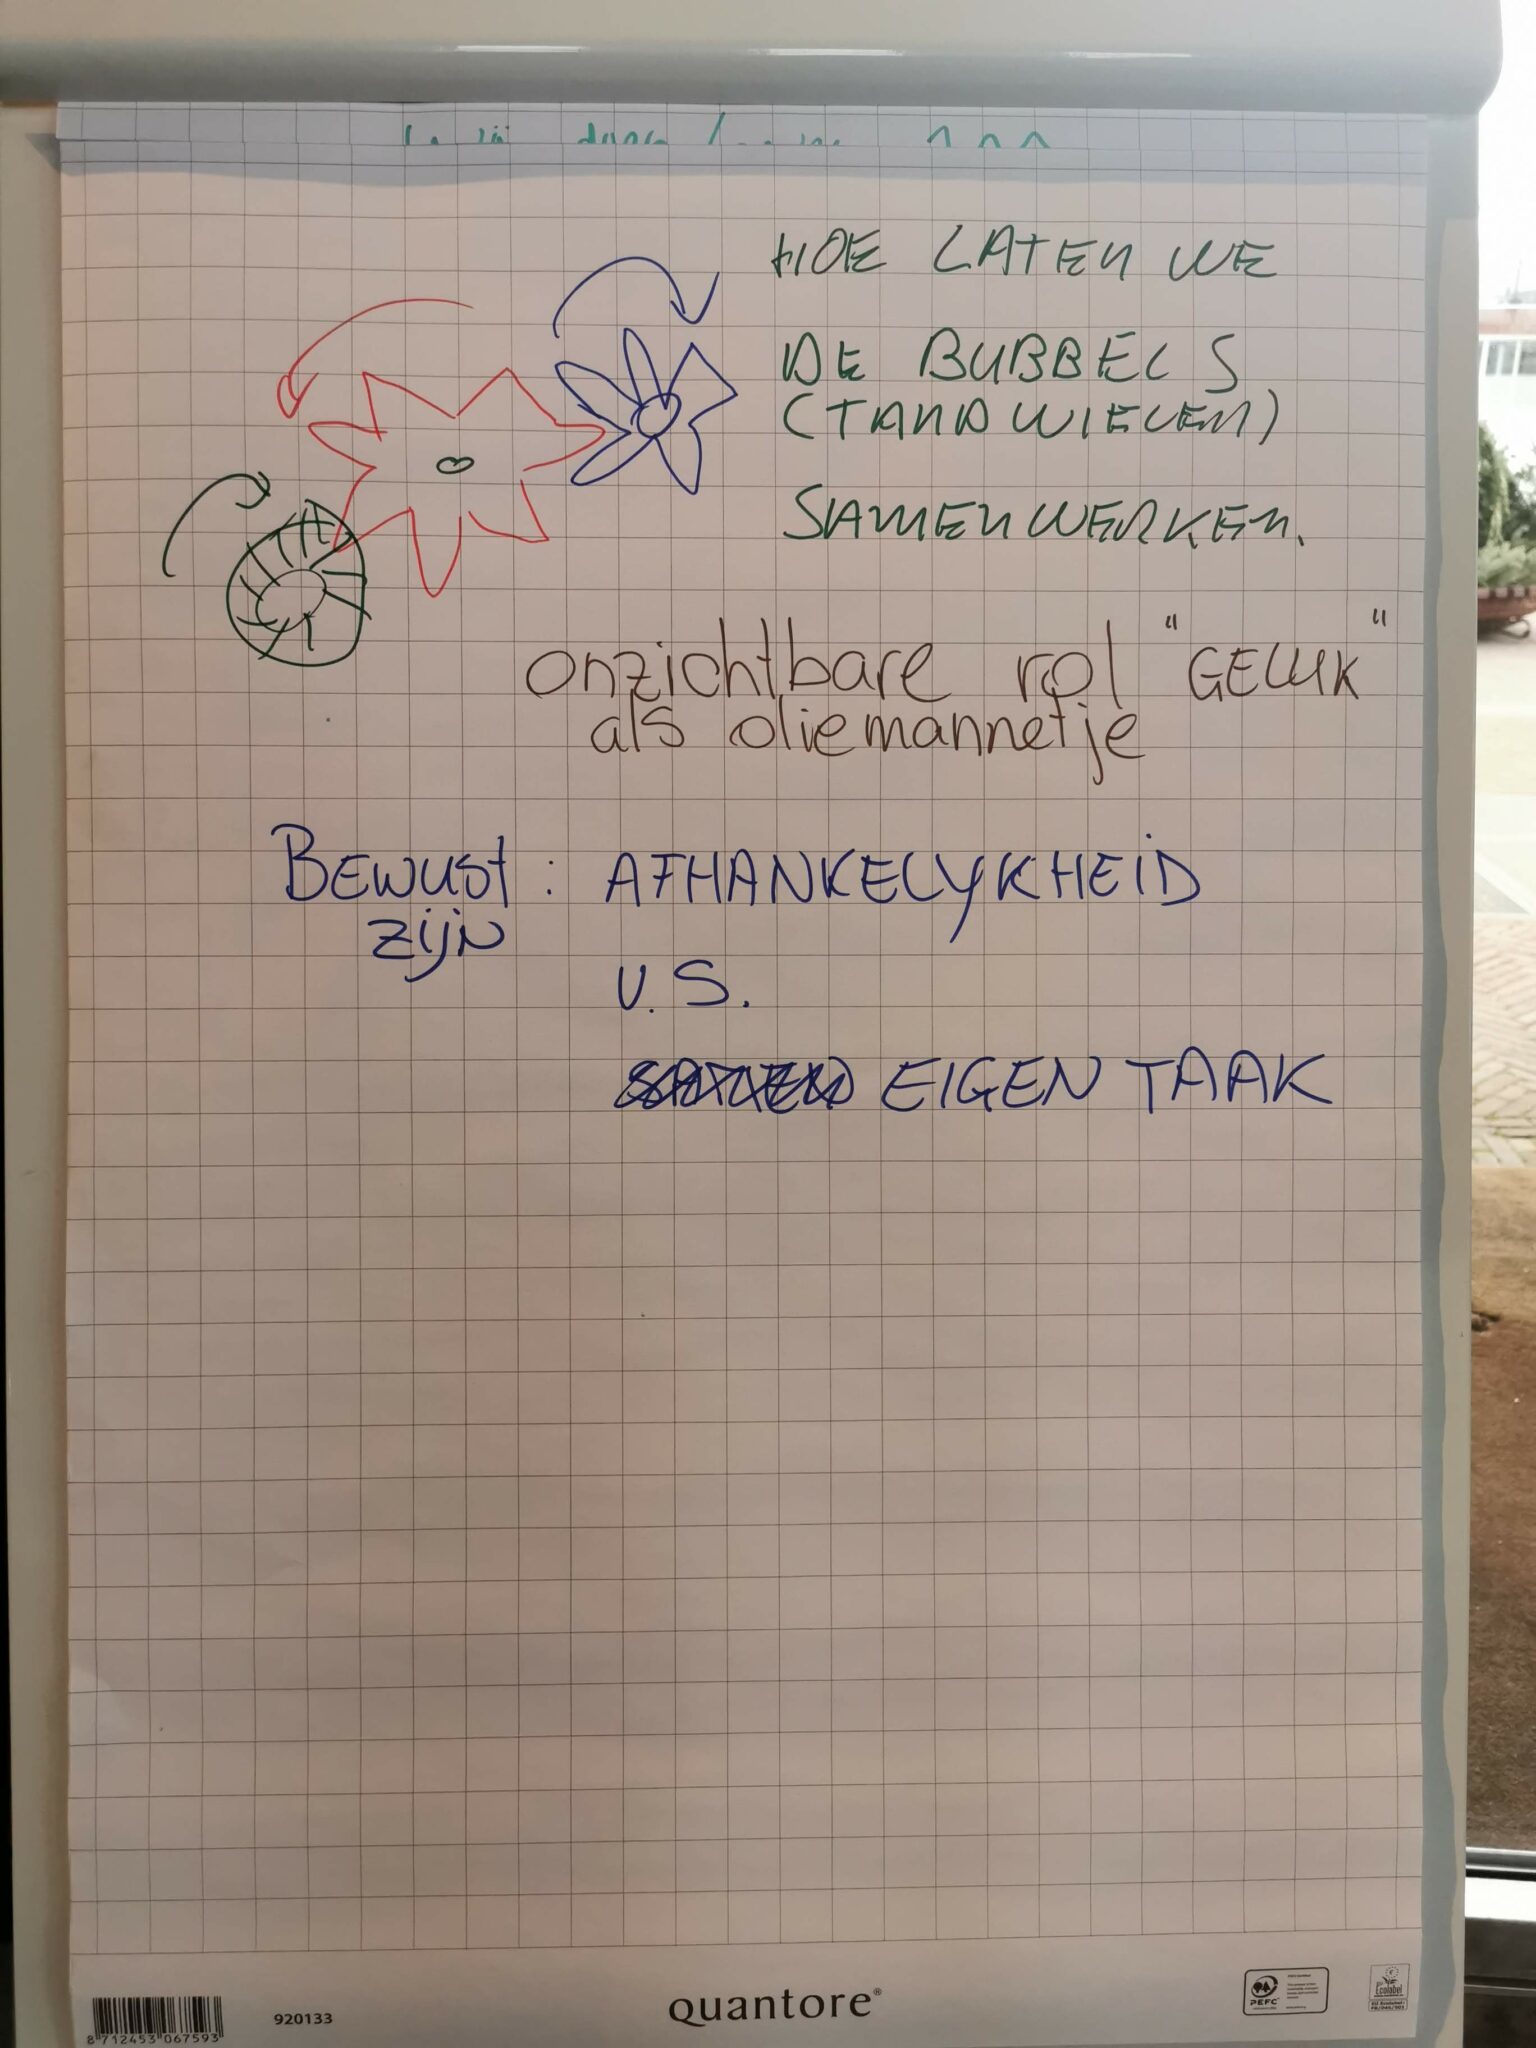 HOE LATEN WE
DE BUBBELS
(TANDWIELEN)
SAMENWERKEN.
onzichtbare rol "GELUK"
als oliemannetje
BEWUST : AFHANKELYKHEID
zijn
V.S.
EIGEN TAAK
8 712453 067593
920133
quantore®
PEFC
Ecolabel